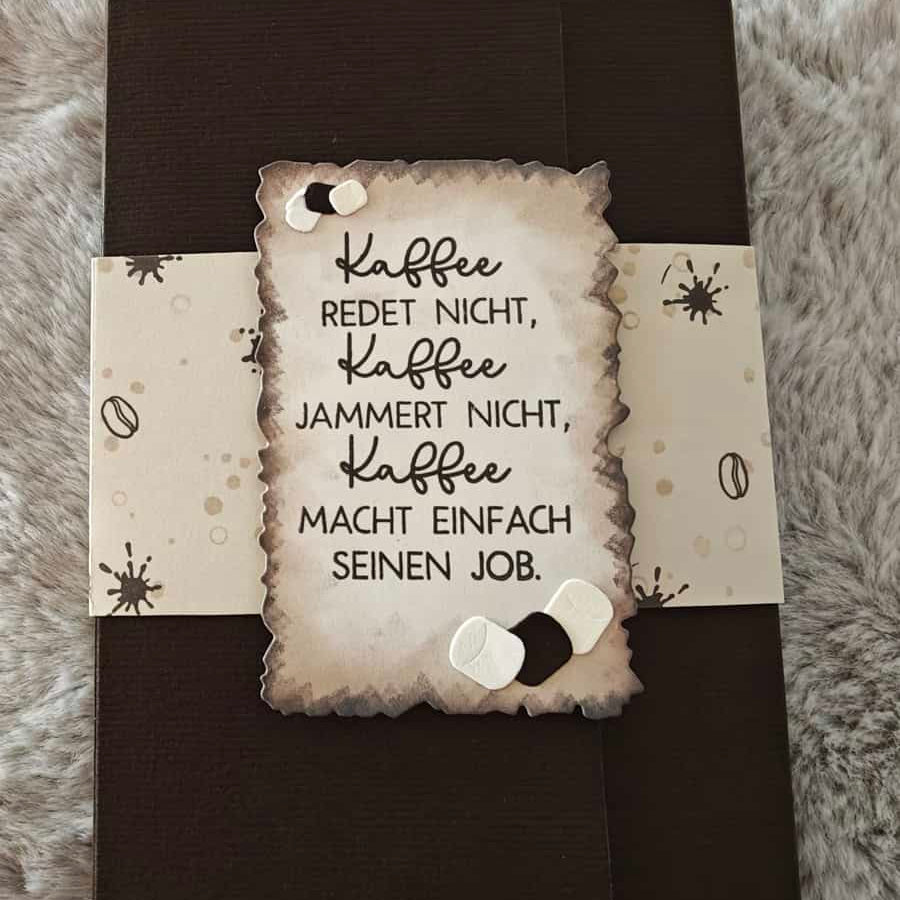 Kaffee
REDET NICHT,
Kaffee
JAMMERT NICHT,
Kaffee
MACHT EINFACH
SEINEN JOB.